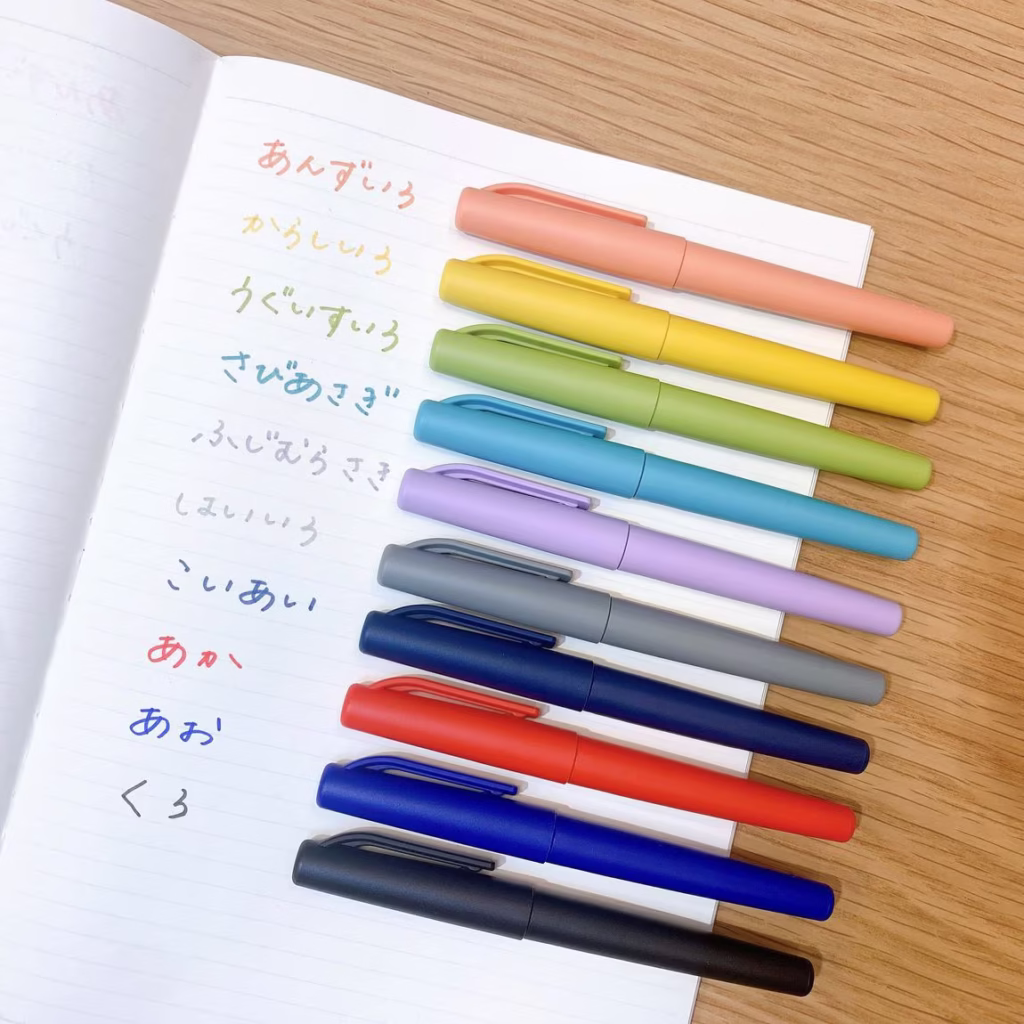 あんずいろ
からしいろ
うぐいすいろ
さびあさぎ
ふじむらさき
はいいろ
こいあい
あか
あお
くろ